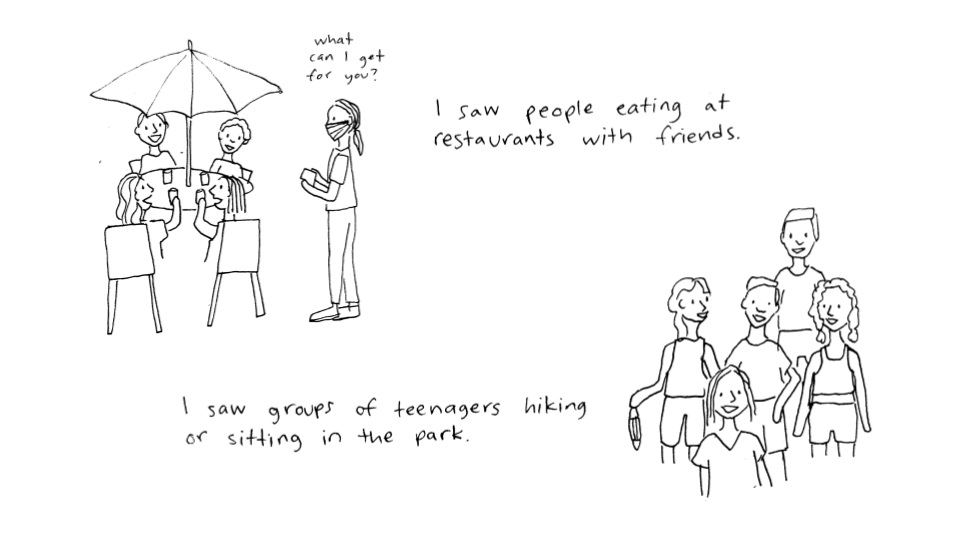 what
can I get
for you?
I saw people eating at
restaurants with friends.
I saw groups of teenagers hiking
or sitting in the park.